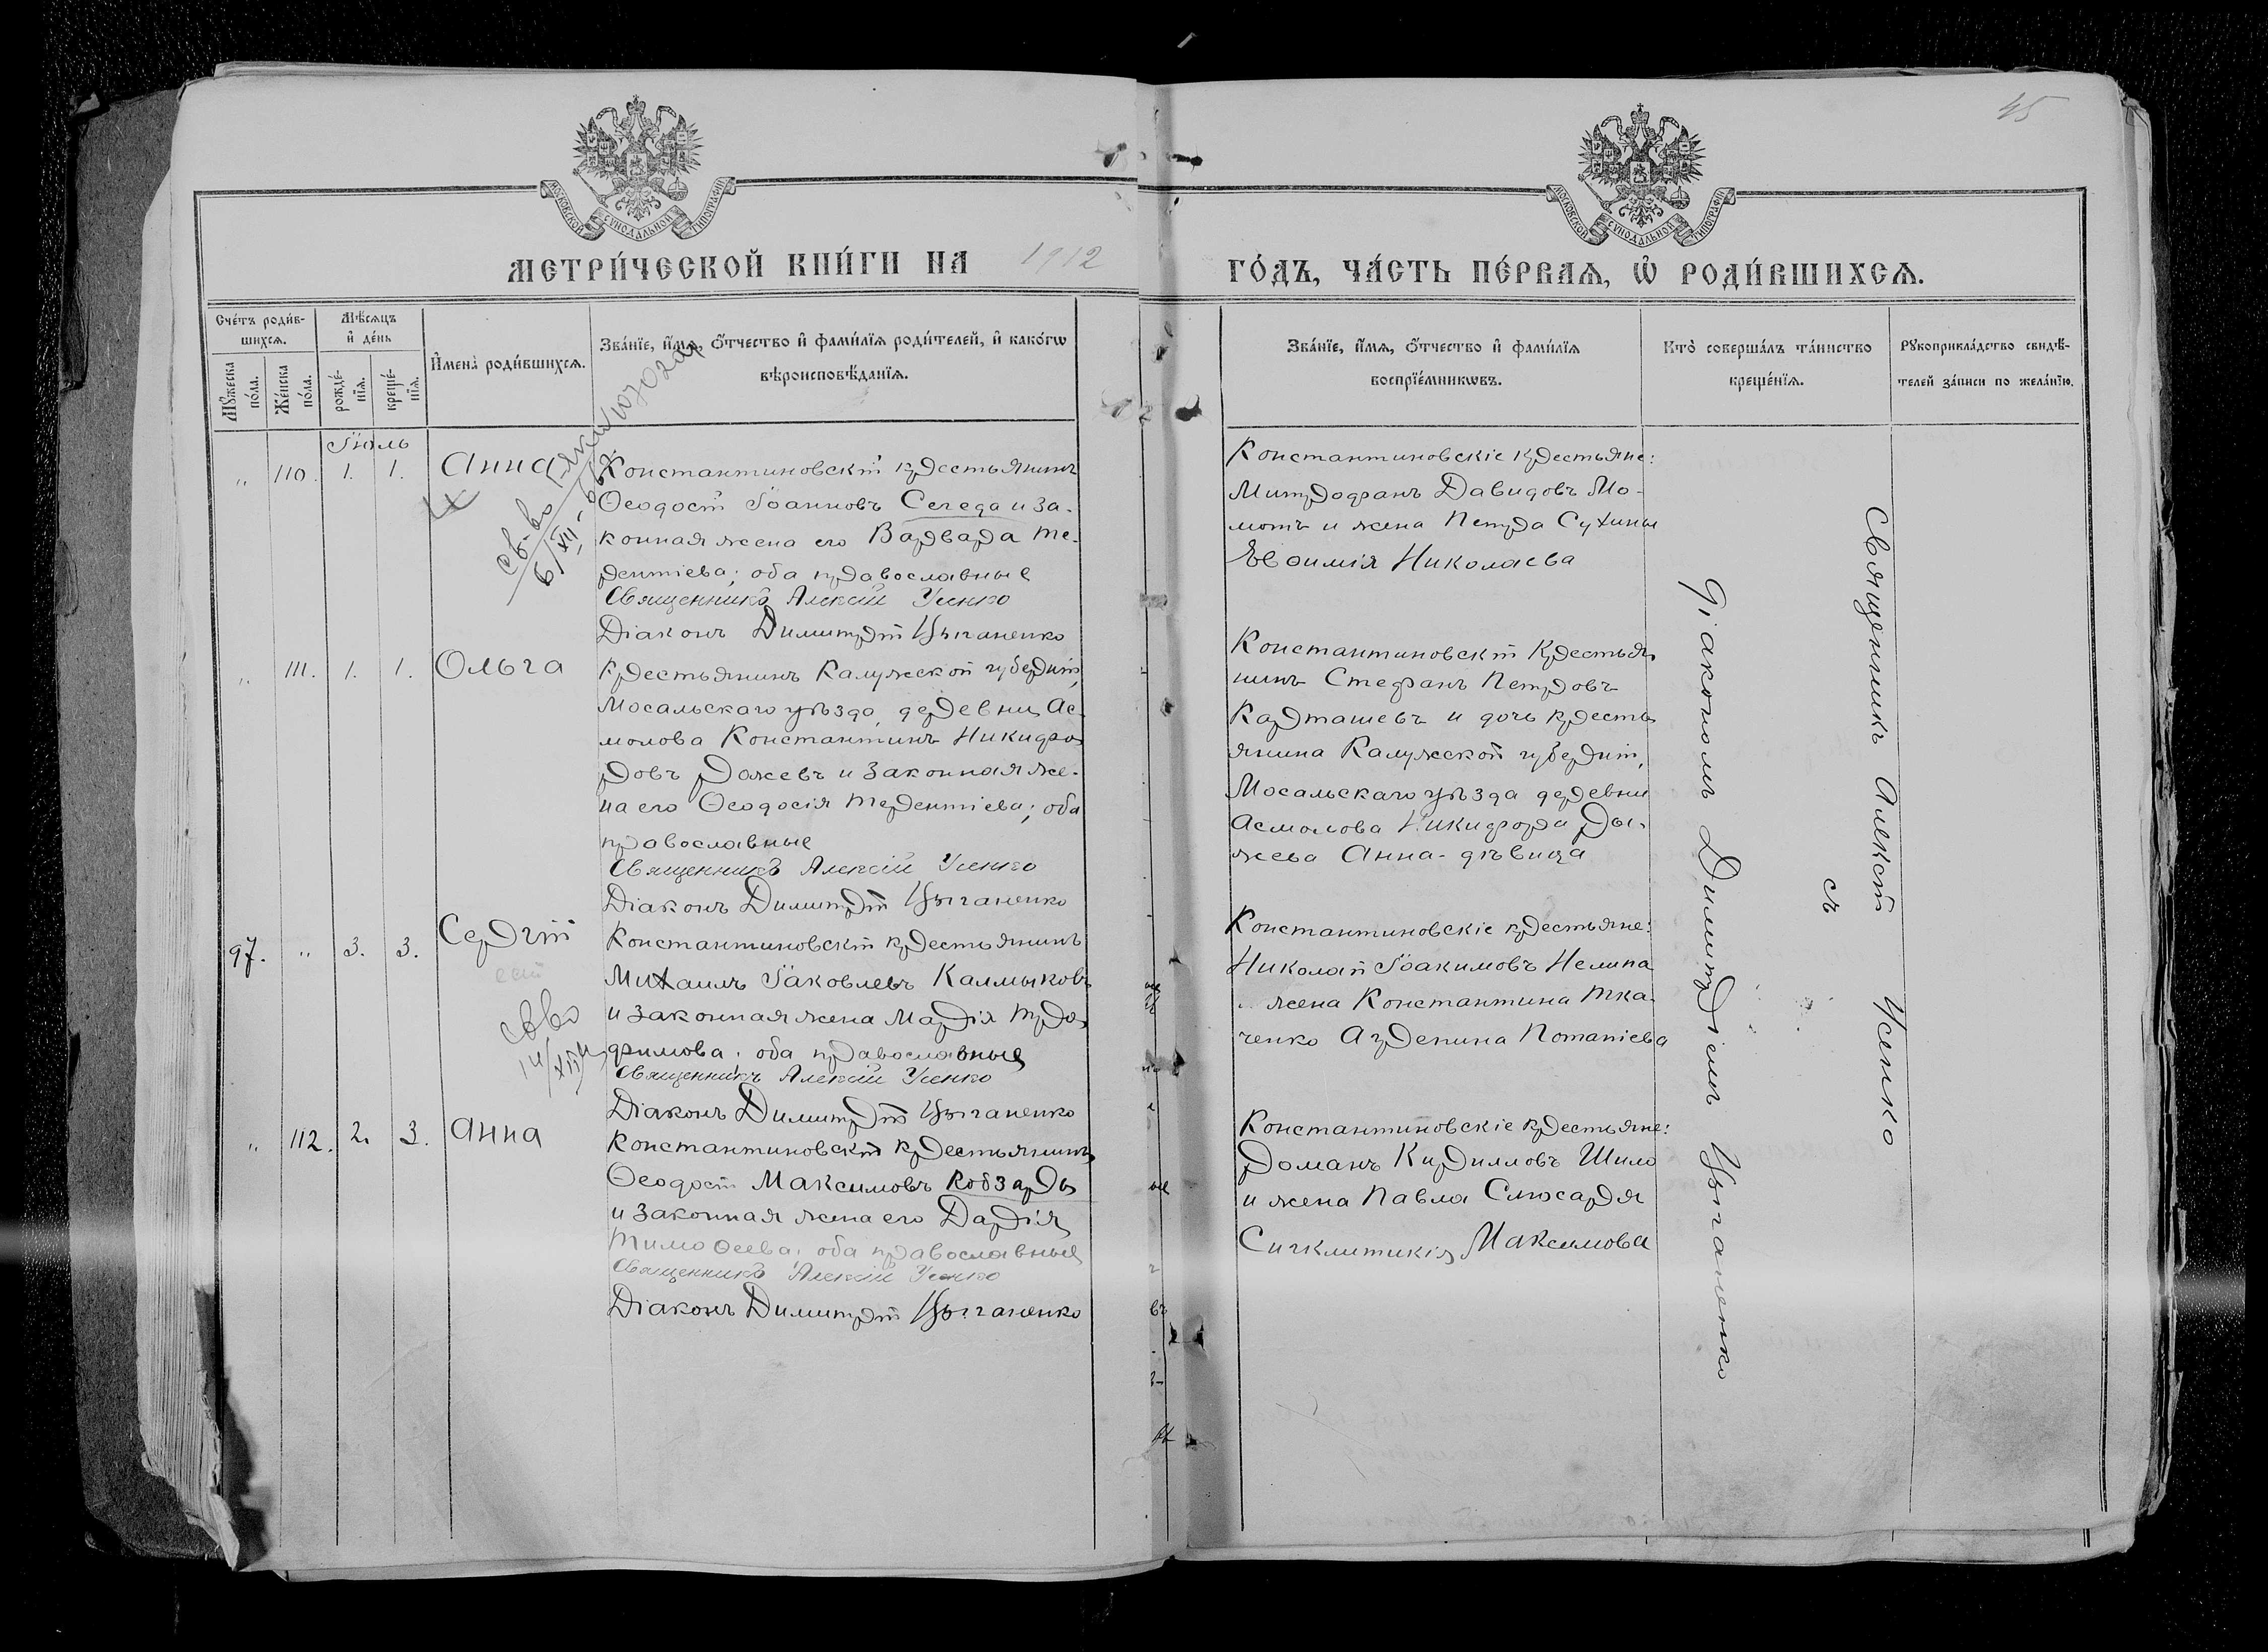 45
МОСКОВСКОЙ СѴНОДАЛЬНОЙ ТИПОГРАФІИ
МОСКОВСКОЙ СѴНОДАЛЬНОЙ ТИПОГРАФІИ
МЕТРИ́ЧЕСКОЙ КНИ́ГИ НА 1912
ГО́ДЪ, ЧА́СТЬ ПЕ́РВАѦ, Ѽ РОДИ́ВШИХСѦ.
Сче́тъ роди́в-
шихсѧ.
Мꙋ́жеска по́ла.
Же́нска по́ла.
Мѣ́сѧцъ
и҆ де́нь
рожде́-
нїѧ.
креще́-
нїѧ.
И҆мена̀ роди́вшихсѧ.
Зва́нїе, и҆́мѧ, ѻ҆́тчество и҆ фами́лїѧ роди́телей, и҆ како́гѡ
вѣроисповѣ́данїѧ.
Зва́нїе, и҆́мѧ, ѻ҆́тчество и҆ фами́лїѧ
воспрїе́мникѡвъ.
Кто̀ соверша́лъ та́инство
креще́нїѧ.
Рꙋкоприкла́дство свидѣ́-
телей за́писи по жела́нїю.
Іюль
„ 110. 1. 1. Анна
Константиновскій крестьянинъ
Ѳеодосій Іоанновъ Середа и за-
конная жена его Варвара Те-
рентіева; оба православные
Священникъ Алексій Усенко
Діаконъ Димитрій Цыганенко
Константиновскіе крестьяне:
Митрофанъ Давидовъ Мо-
мотъ и жена Петра Сухины
Евѳимія Николаева
св-во
6/XII-
„ 111. 1. 1. Ольга
Крестьянинъ Калужской губерніи,
Мосальскаго уѣзда, деревни Ас-
молова Константинъ Никифо-
ровъ Рожевъ и законная же-
на его Ѳеодосія Терентіева; оба
православные
Священникъ Алексій Усенко
Діаконъ Димитрій Цыганенко
Константиновскій Крестья-
нинъ Стефанъ Петровъ
Карташевъ и дочь кресть-
янина Калужской губерніи,
Мосальскаго уѣзда деревни
Асмолова Никифора Ры-
жева Анна-дѣвица
97. „ 3. 3. Сергій
Константиновскій крестьянинъ
Михаилъ Іаковлевъ Калмыковъ
и законная жена Марія Тро-
фимова; оба православные
Священникъ Алексій Усенко
Діаконъ Димитрій Цыганенко
Константиновскіе крестьяне:
Николай Іоакимовъ Нелипа
и жена Константина Тка-
ченко Агрепина Потапіева
„ 112. 2. 3. Анна
Константиновскій крестьянинъ
Ѳеодосій Максимовъ Кобзарь
и законная жена его Дарія
Тимоѳеева; оба православные
Священникъ Алексій Усенко
Діаконъ Димитрій Цыганенко
Константиновскіе крестьяне:
Романъ Кирилловъ Шило
и жена Павла Слюсаря
Сигклитикія Максимова
Священникъ Алексій Усенко
съ
Діакономъ Димитріемъ Цыганенко